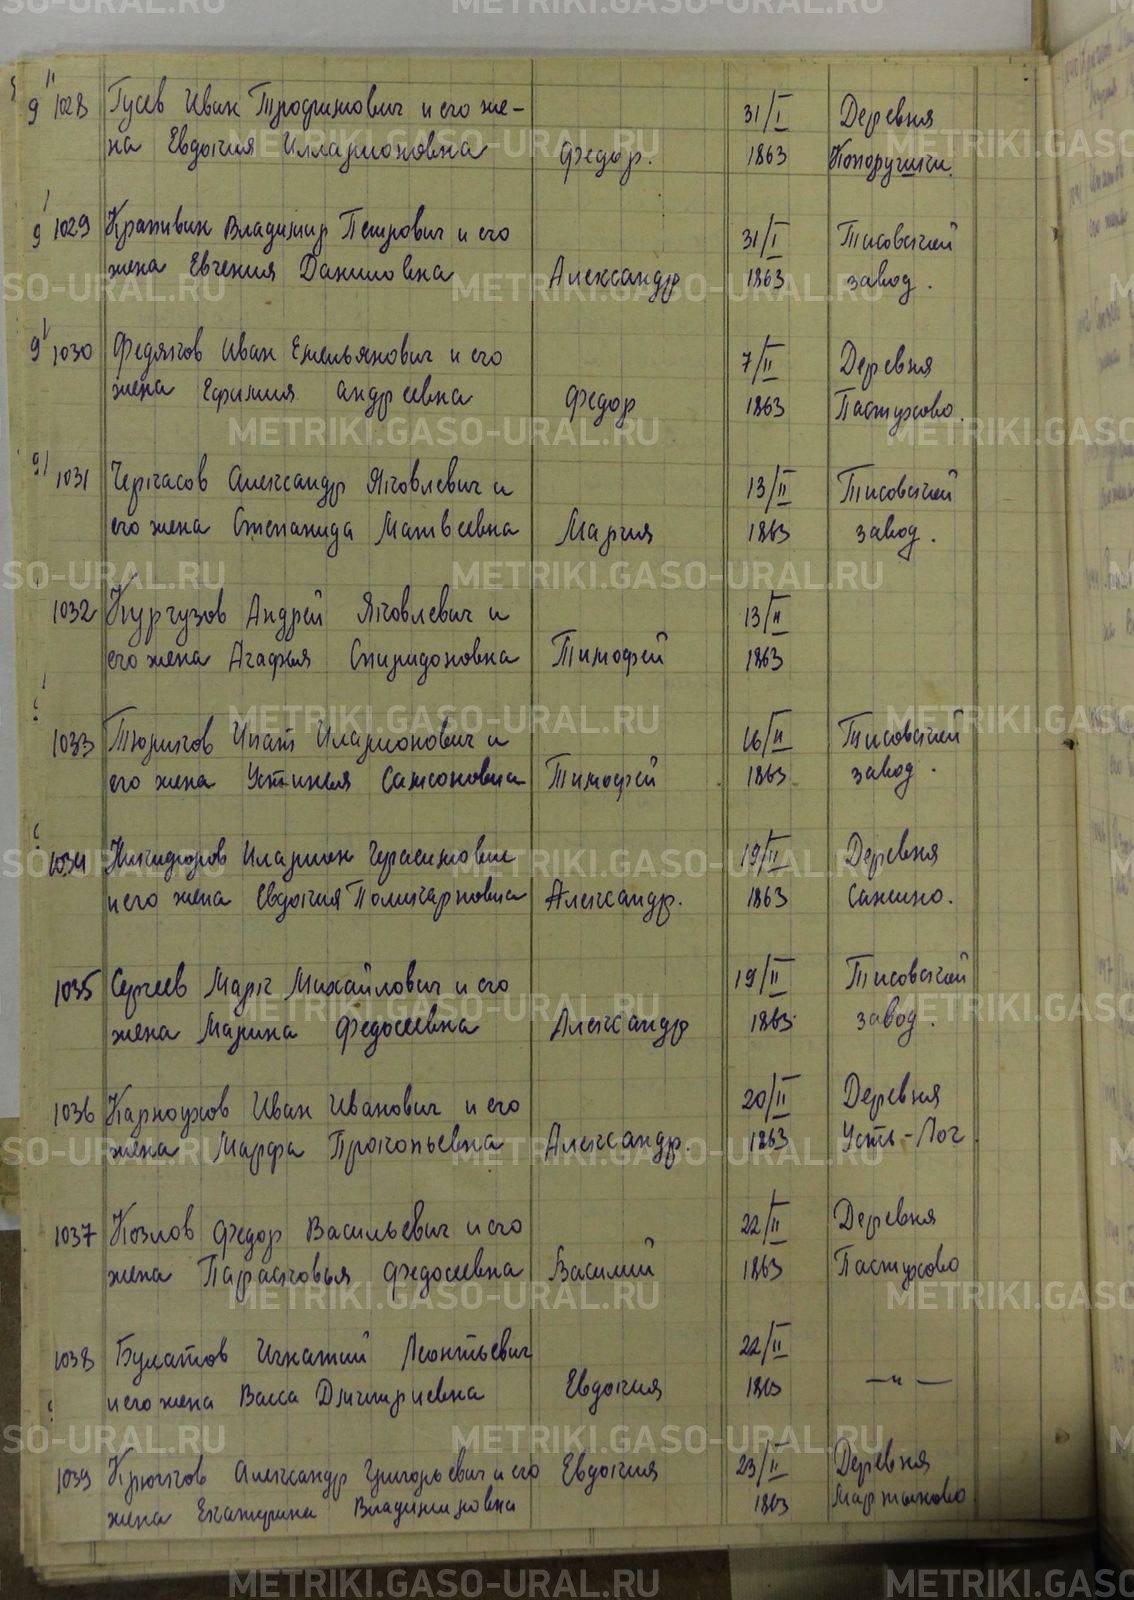 1028 Гусев Иван Трофимович и его же-
на Евдокия Илларионовна Федор. 31/I 1863 Деревня Коноручики.
1029 Крапивин Владимир Петрович и его
жена Евгения Даниловна Александр 31/I 1863 Тисовский завод.
1030 Федяков Иван Емельянович и его
жена Ефимия Андреевна Федор 7/II 1863 Деревня Пастухово.
1031 Черкасов Александр Яковлевич и
его жена Степанида Матвеевна Мария 13/II 1863 Тисовский завод.
1032 Кургузов Андрей Яковлевич и
его жена Агафья Спиридоновна Тимофей 13/II 1863
1033 Тюриков Ипат Иларионович и
его жена Устинья Самсоновна Тимофей 16/II 1863 Тисовский завод.
1034 Никифоров Иларион Герасимович
и его жена Евдокия Поликарповна Александр. 19/II 1863 Деревня Сансино.
1035 Сергеев Марк Михайлович и его
жена Марина Федосеевна Александр 19/II 1863 Тисовский завод.
1036 Карноухов Иван Иванович и его
жена Марфа Прокопьевна Александр. 20/II 1863 Деревня Усть-Лог.
1037 Козлов Федор Васильевич и его
жена Парасковья Федосеевна Василий 22/II 1863 Деревня Пастухово
1038 Булатов Игнатий Леонтьевич
и его жена Васса Дмитриевна Евдокия 22/II 1863 —"—
1039 Крючков Александр Григорьевич и его
жена Екатерина Владимировна Евдокия 23/II 1863 Деревня Мартыново
METRIKI.GASO-URAL.RU